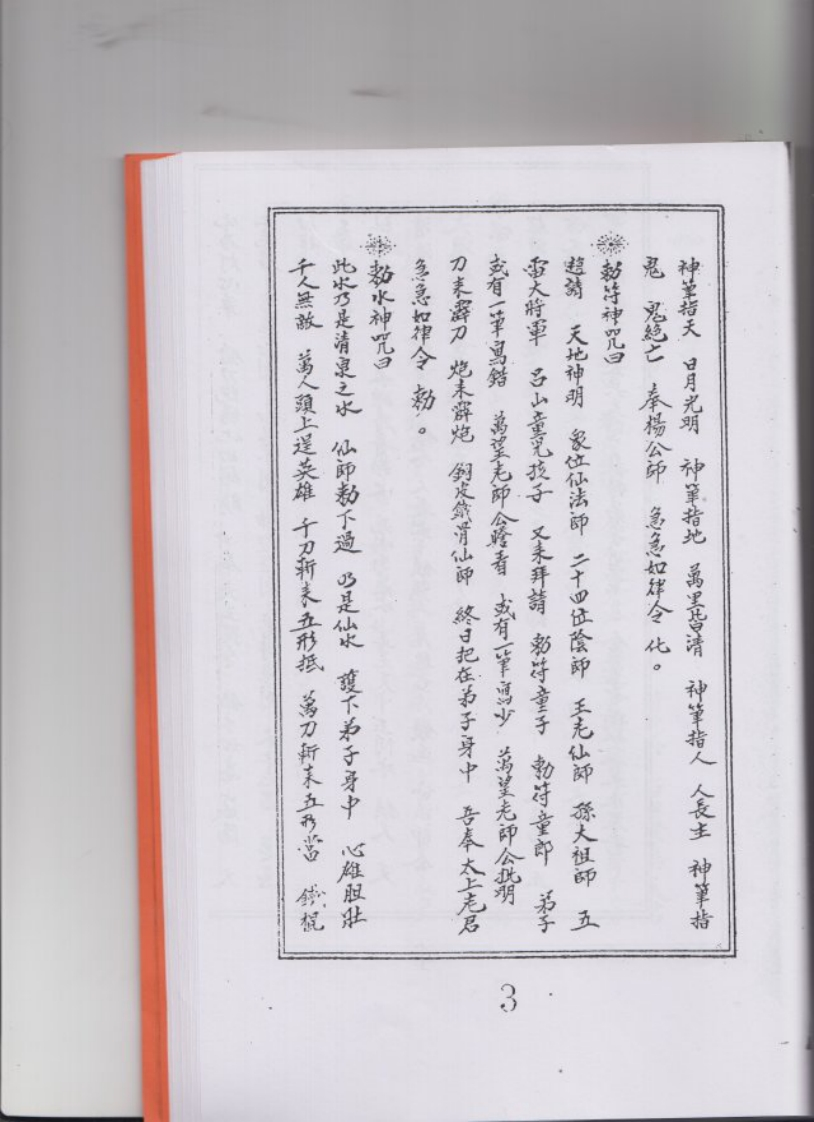 神筆指天　日月光明　神筆指地　萬里皆清　神筆指人　人長生　神筆指
鬼　鬼絕亡　奉楊公師　急急如律令　化。
勅符神咒曰
趋請　天地神明　象位仙法師　二十四位陰師　王老仙師　孫大祖師　五
雷大將軍　呂山童兒孩子　又来拜請　勅符童子　勅符童郎　弟子
或有一筆寫錯　萬望老師公瞻看　或有一筆寫少　萬望老師公批明
刀来霹刀　炮来霹炮　銅皮鐵骨仙師　終日把在弟子身中　吾奉太上老君
急急如律令　勅。
勅水神咒曰
此水乃是清泉之水　仙師勅下過　乃是仙水　護下弟子身中　心雄胆壯
千人無敵　萬人頭上逞英雄　千刀斬来五形抵　萬刀斬来五形當　鐵棍
3